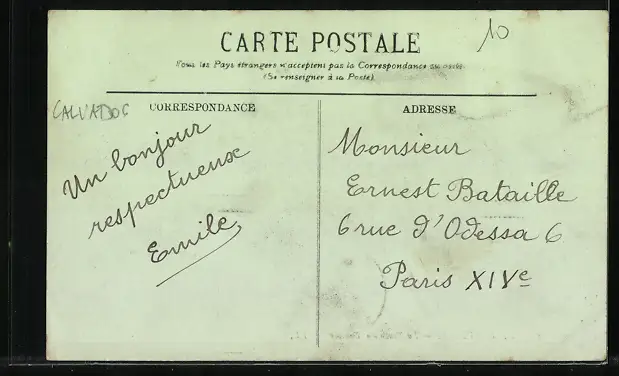 10
CARTE POSTALE
Tous les Pays étrangers n'acceptent pas la Correspondance au
(Se renseigner à la Poste)
CALVADOS
CORRESPONDANCE
Un bonjour
respectueux
Emile
ADRESSE
Monsieur
Ernest Bataille
6 rue d'Odessa 6
Paris XIVe